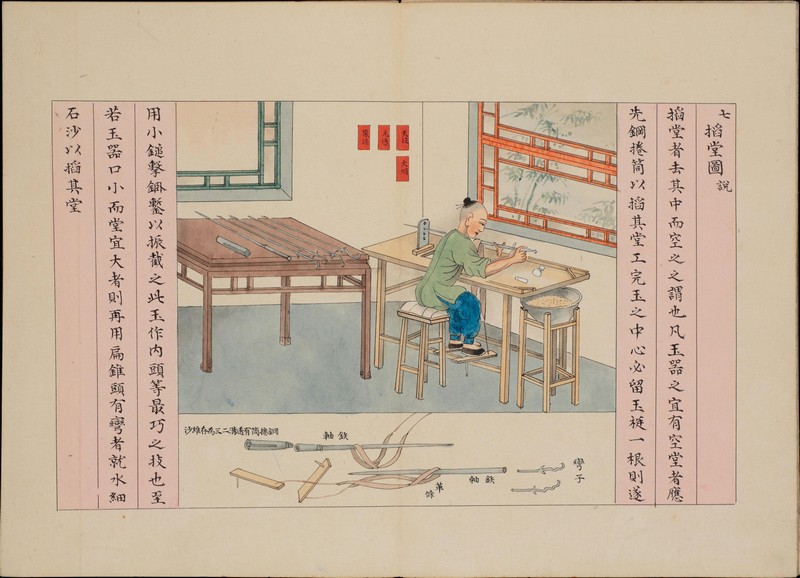 七 搯堂圖 說
搯堂者去其中而空之之謂也凡玉器之宜有空堂者應
先鋼捲筒以搯其堂工完玉之中心必留玉梃一根則遂
用小鎚擊鋼鏨以振截之此玉作內頭等最巧之技也至
若玉器口小而堂宜大者則再用扁錐頭有彎者就水細
石沙以搯其堂
鋼捲筒有透溝二三為存堆沙
鉄軸
彎子
鉄軸
革條